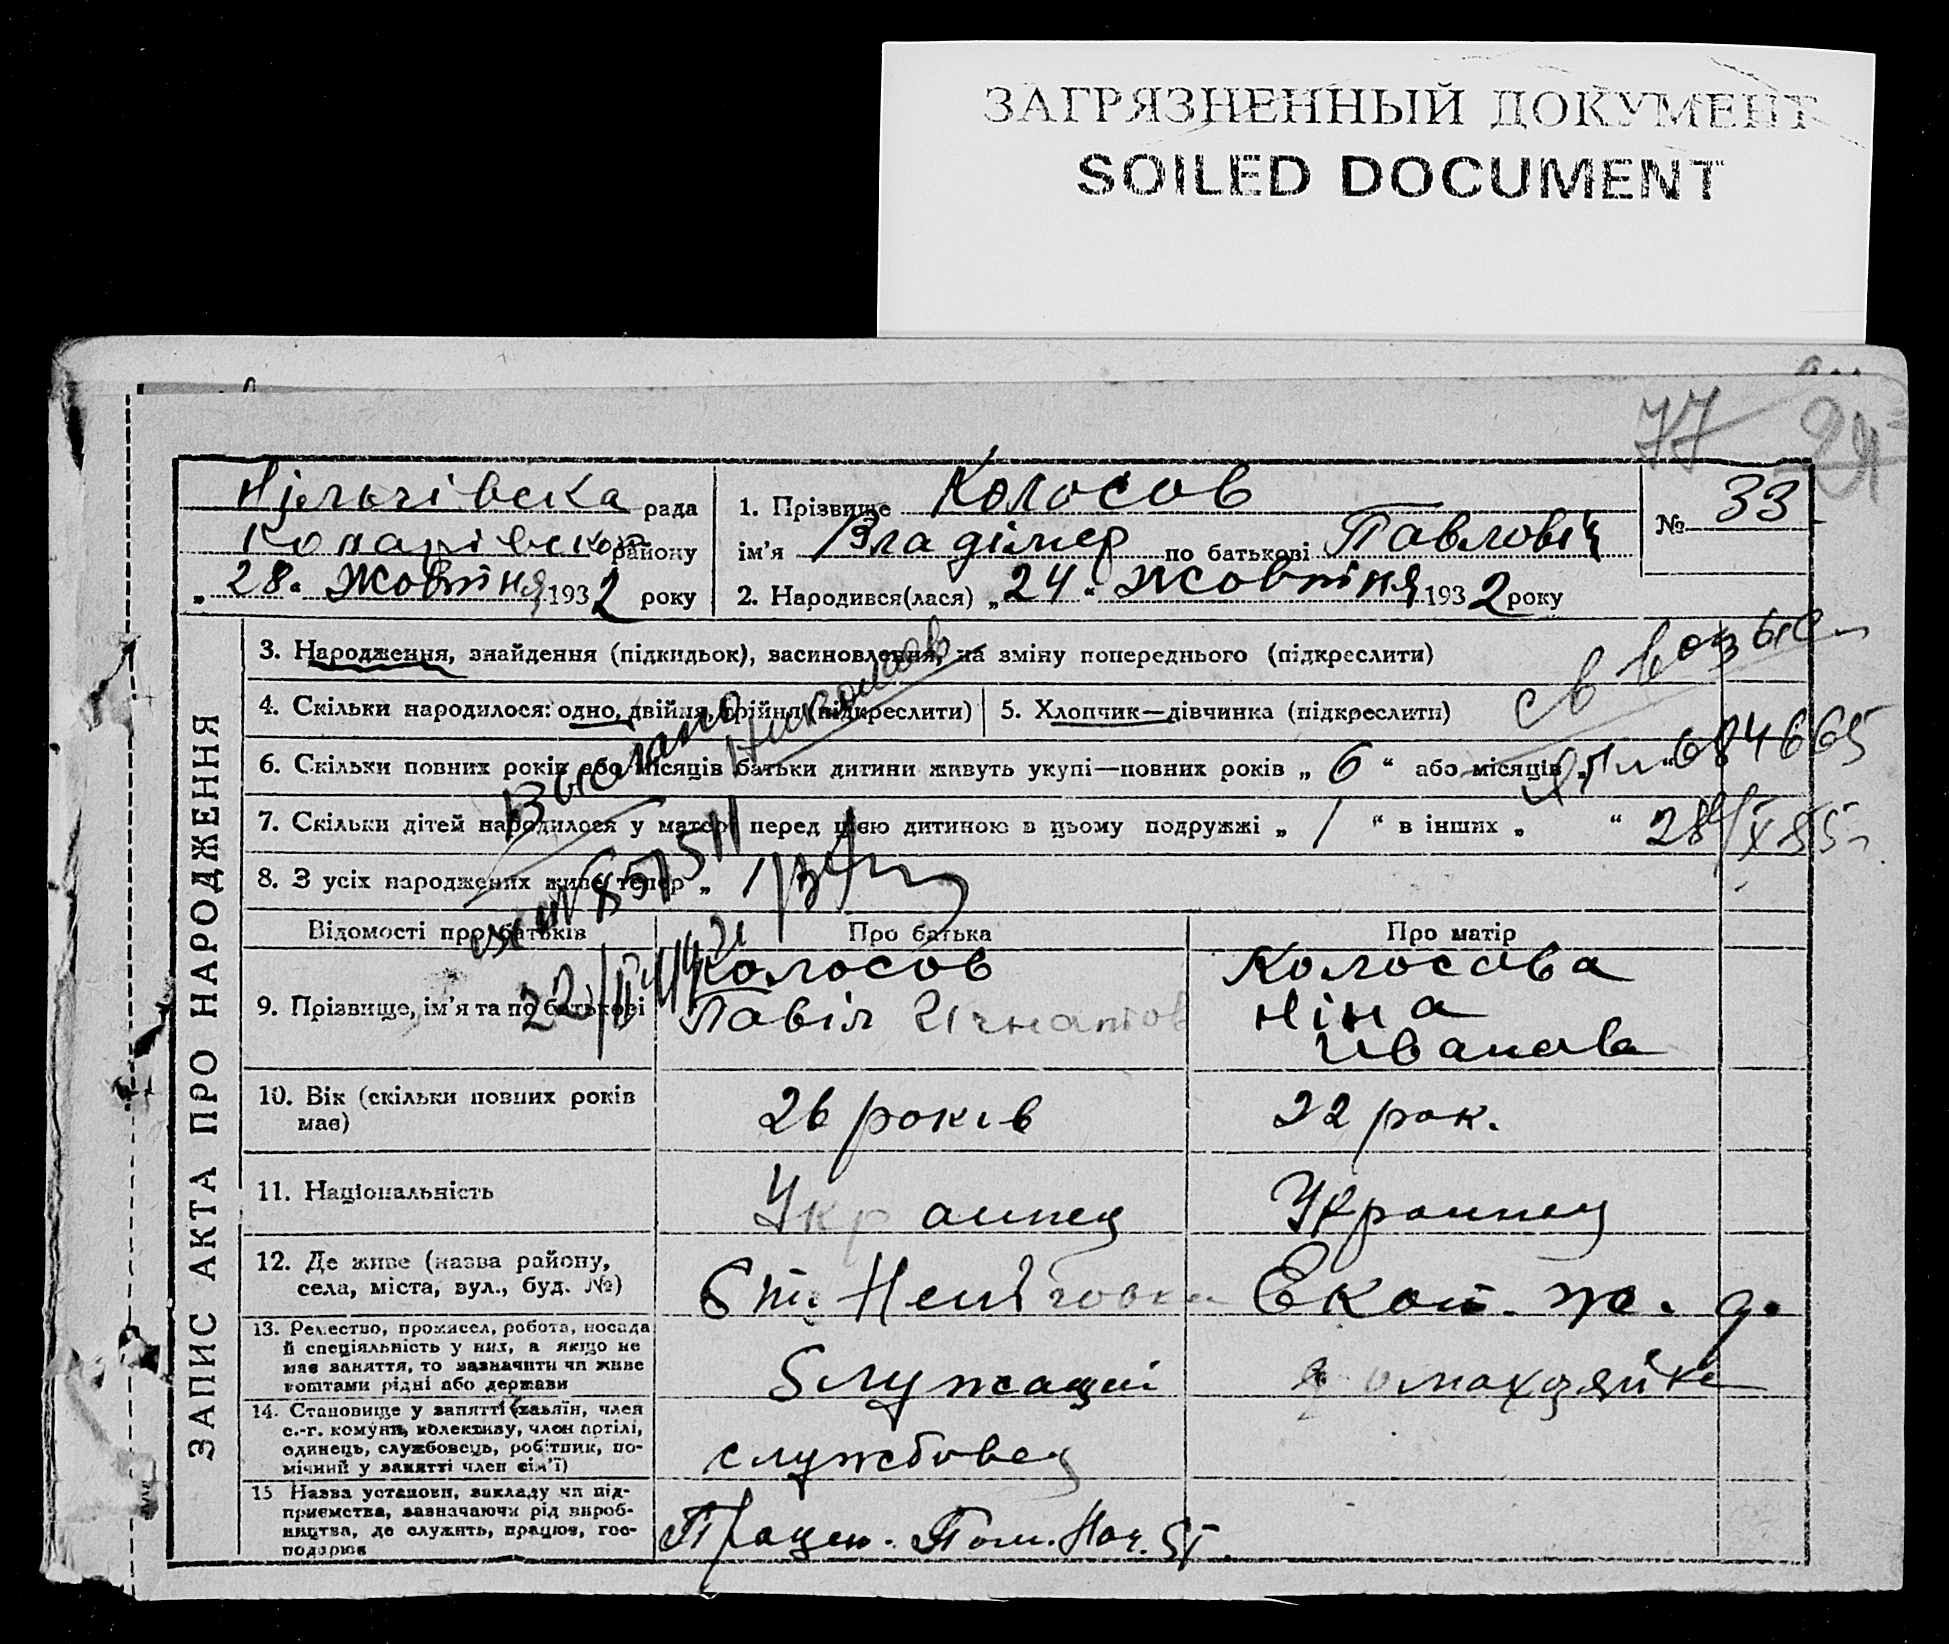 ЗАГРЯЗНЕННЫЙ ДОКУМЕНТ
SOILED DOCUMENT
77
ЗАПИС АКТА ПРО НАРОДЖЕННЯ
рада
району
„28“ Жовтня 1932 року
1. Прізвище Колосов
ім'я Владімер по батькові Павловіч
2. Народився(лася) „24“ Жовтня 1932 року
№ 33
3. Народження, знайдення (підкидьок), засиновлення, на зміну попереднього (підкреслити)
4. Скільки народилося: одно, двійня, трійня (підкреслити)
5. Хлопчик—дівчинка (підкреслити)
6. Скільки повних років або місяців батьки дитини живуть укупі—повних років „6“ або місяців „ “
7. Скільки дітей народилося у матері перед цією дитиною в цьому подружжі „1“ в інших „ “
8. З усіх народжених живе тепер „1
684665
28/IX 85 г.
Відомості про батьків
Про батька
Про матір
9. Прізвище, ім'я та по батькові
Колосов
Павіл Игнатов
Колосова
Ніна
Иванова
10. Вік (скільки повних років
має)
26 років
22 рок.
11. Національність
Украинец
Украинец
12. Де живе (назва району,
села, міста, вул., буд. №)
Екат. ж. д.
13. Ремество, промисел, робота, посада
й спеціяльність у них, а якщо не
має заняття, то зазначити чи живе
коштами рідні або держави
Служащий
домахозяйка
14. Становище у занятті (хазяїн, член
с.-г. комуни, колективу, член артілі,
одинець, службовець, робітник, по-
мічний у занятті член сім'ї)
службовец
15 Назва установи, закладу чи під-
приємства, зазначаючи рід вироб-
ництва, де служить, працює, гос-
подарює
Працюе. Пом. Нач. ст.